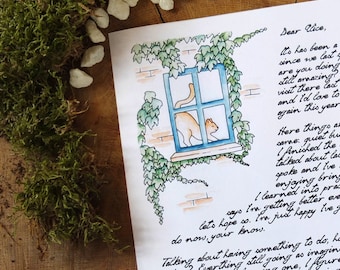 Dear Alice,
It's has been a
since we last
are you doing
still amazing?
visit there last
and I'd love to
again this year
Here things a
came quiet bu
I finished the
talked about las
spoke and I've
enjoying bring
I learned into prac
say I'm getting better eve
let's hope so. I'm just happy I've
do now, your know.
Talking about having something to do, ho
Everything still going as imagin
one, I figure